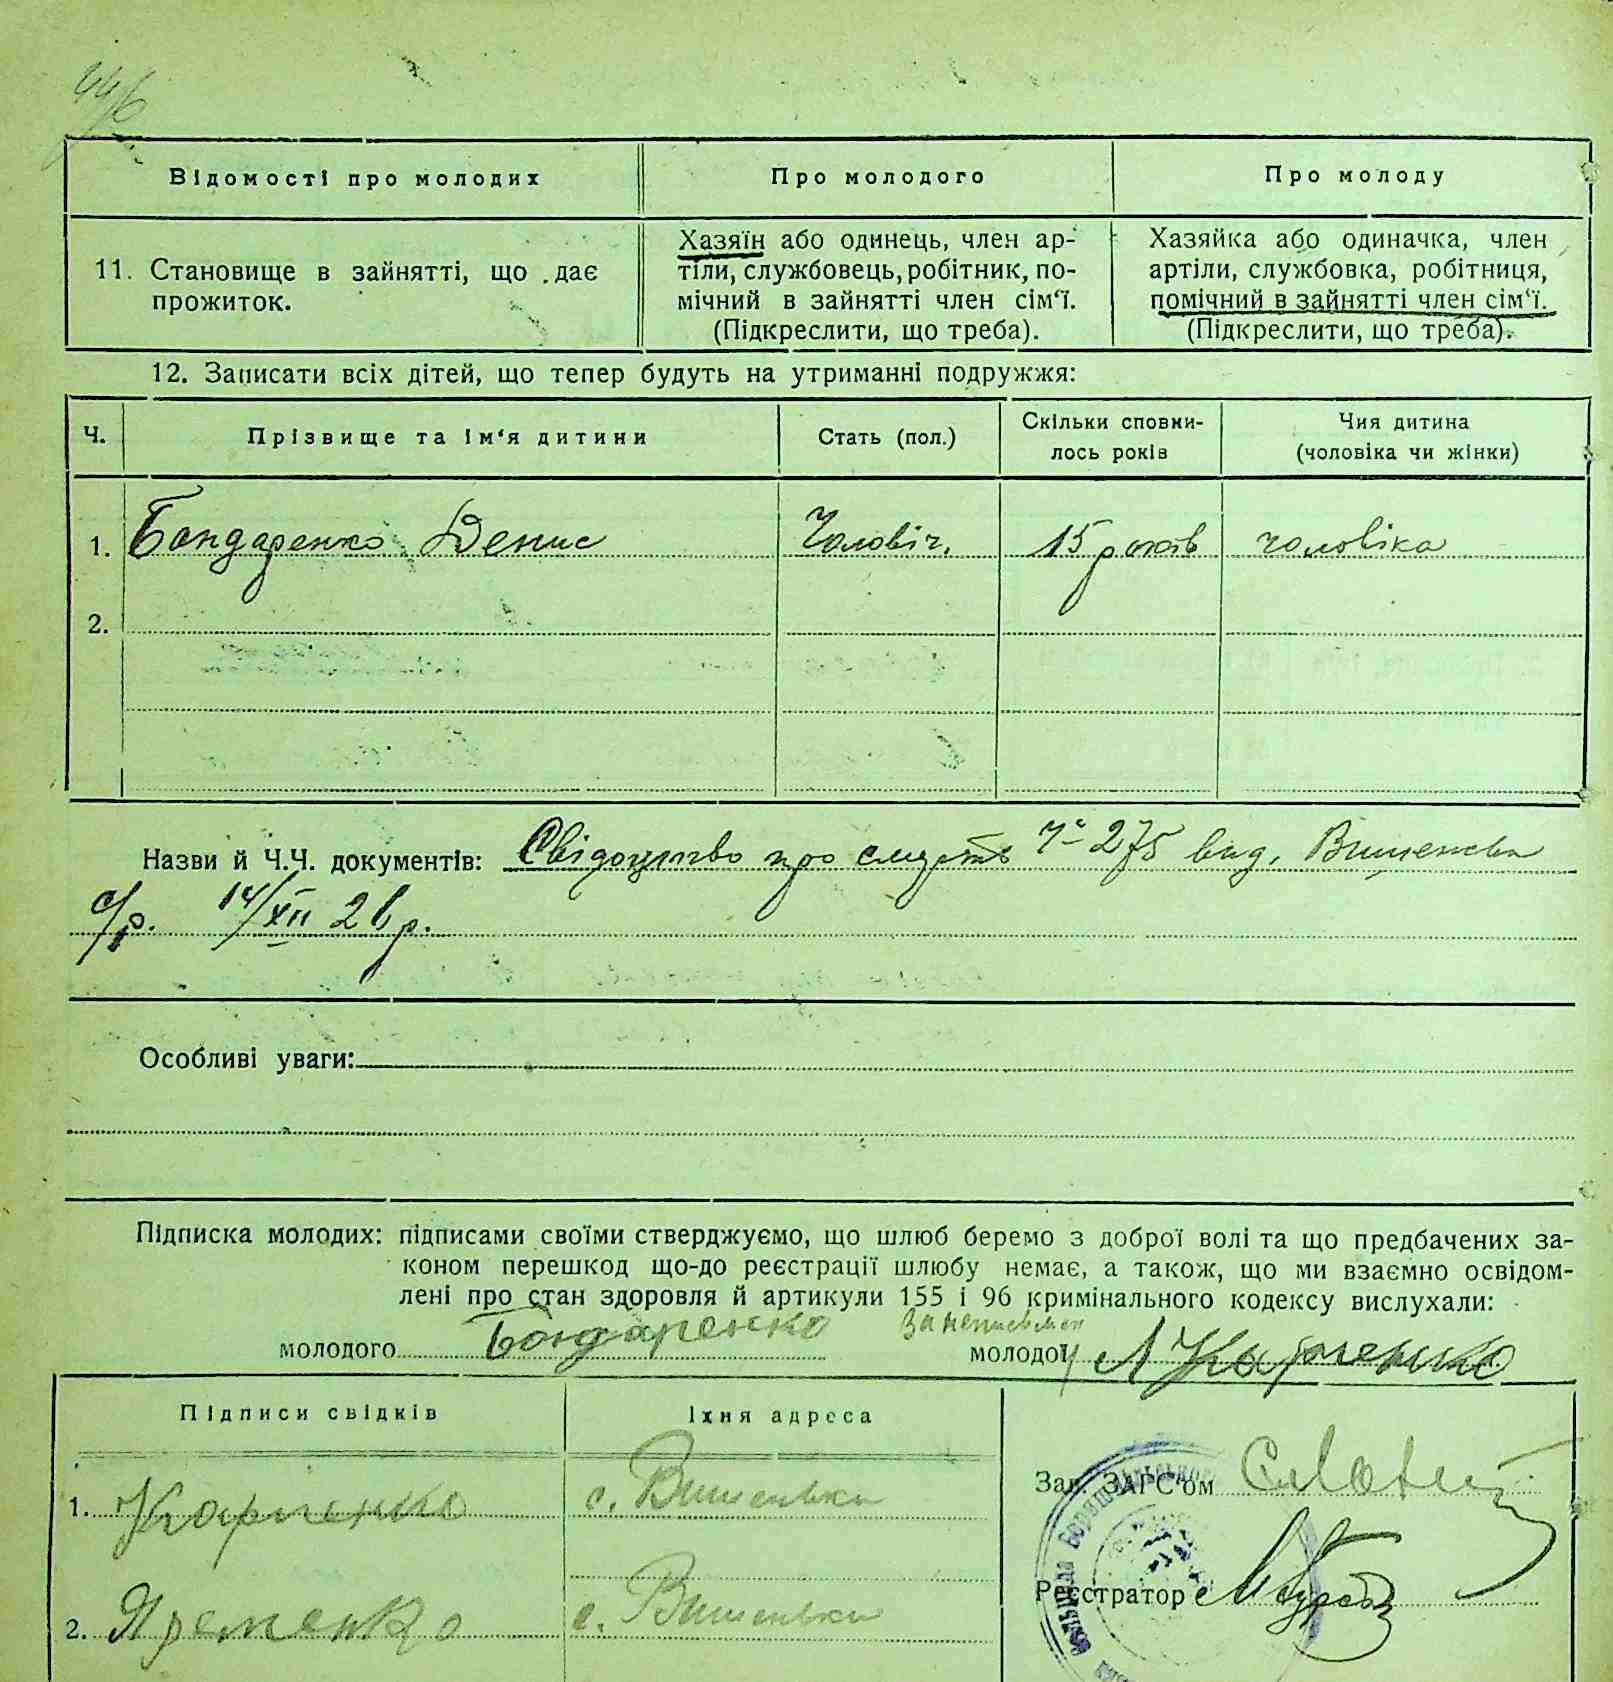 44/6
Відомості про молодих Про молодого Про молоду
11. Становище в зайнятті, що дає прожиток.
Хазяїн або одинець, член ар-
тіли, службовець, робітник, по-
мічний в зайнятті член сім'ї.
(Підкреслити, що треба).
Хазяйка або одиначка, член
артіли, службовка, робітниця,
помічний в зайнятті член сім'ї.
(Підкреслити, що треба).
12. Записати всіх дітей, що тепер будуть на утриманні подружжя:
Ч. Прізвище та ім'я дитини Стать (пол.) Скільки сповни-лось років Чия дитина (чоловіка чи жінки)
1. Бондаренко Денис Чоловіч. 15 років чоловіка
2.
Назви й Ч.Ч. документів: Свідоцтво про смерть Ч- 275 вид. Вишенська
с/р. 14/XII 26 р.
Особливі уваги:
Підписка молодих: підписами своїми стверджуємо, що шлюб беремо з доброї волі та що предбачених за-
коном перешкод що-до реєстрації шлюбу немає, а також, що ми взаємно освідом-
лені про стан здоровля й артикули 155 і 96 кримінального кодексу вислухали:
молодого Бондаренко молодої
Підписи свідків Їхня адреса
1. Карпенко с. Вишеньки
2. Яременко с. Вишеньки
Зав. ЗАГС'ом
Реєстратор